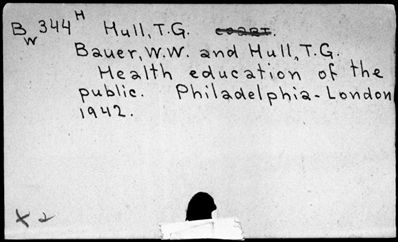 BW344H Hull, T.G.
Bauer, W.W. and Hull, T.G.
Health education of the
public. Philadelphia-London
1942.
x 2